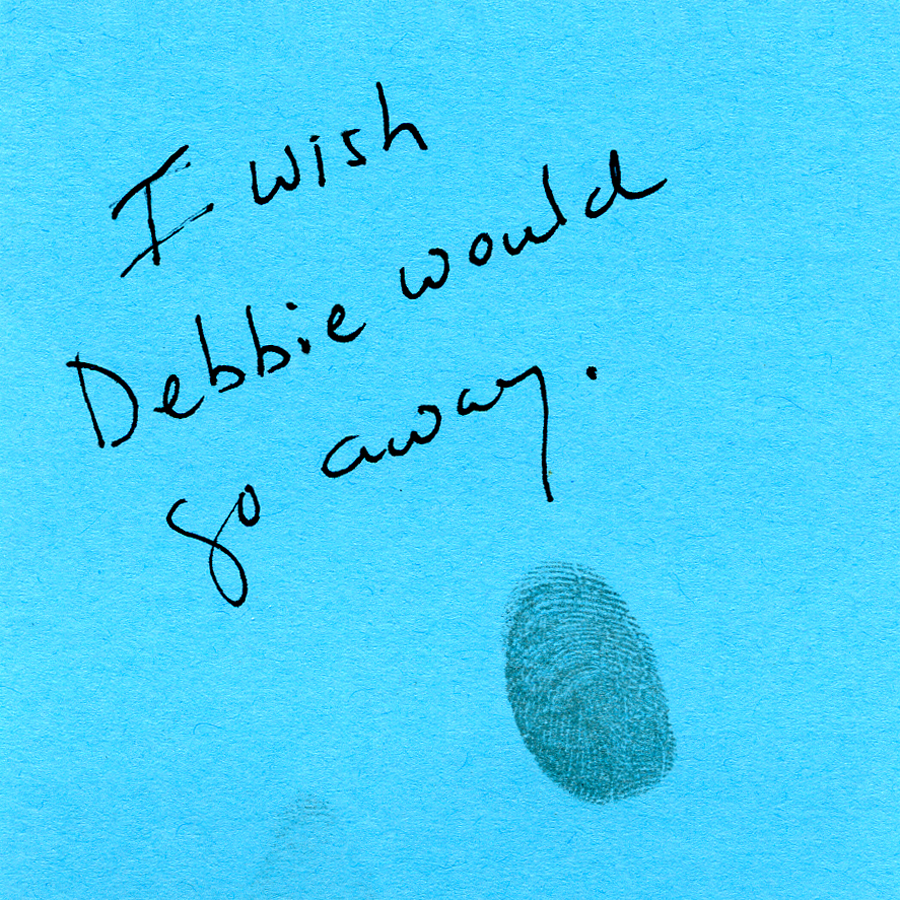 I wish
Debbie would
go away.